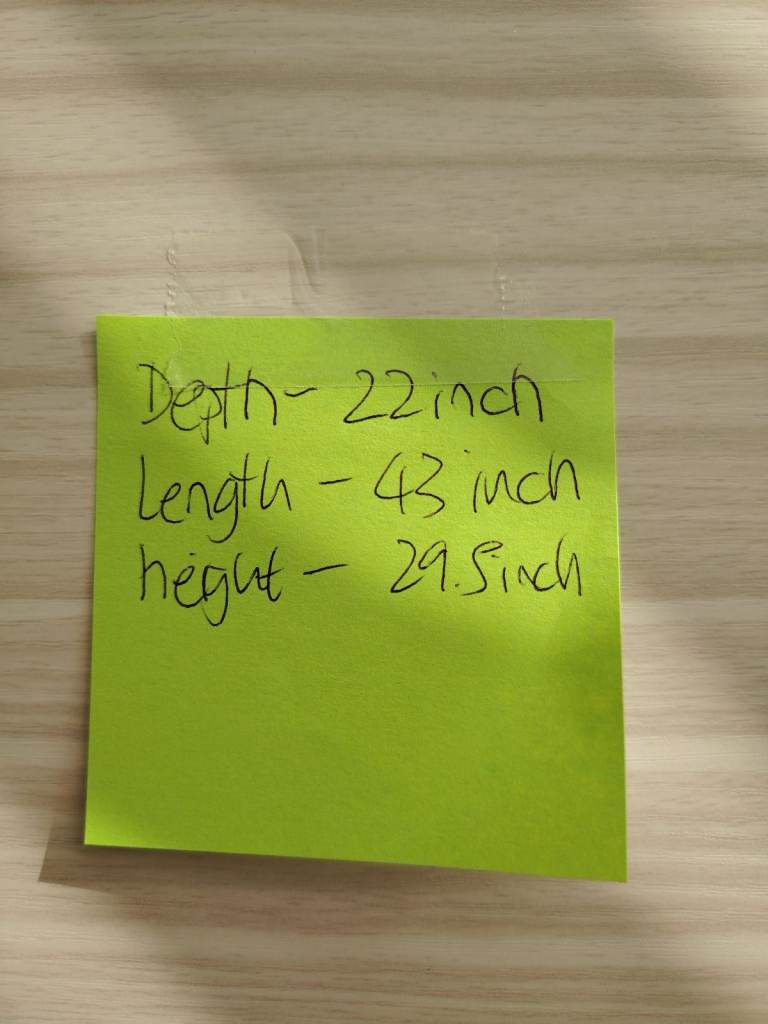 Depth- 22inch
Length - 43 inch
height - 29.5inch